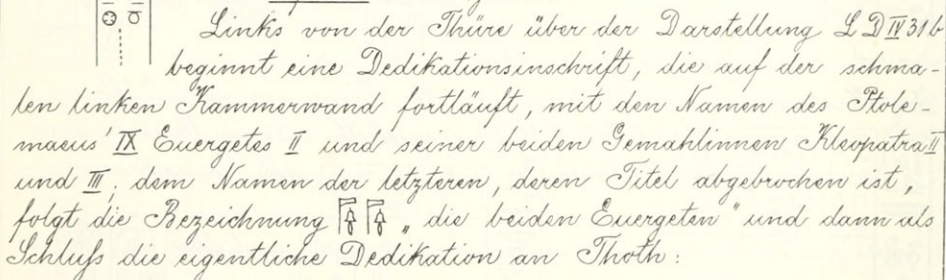 Links von der Thüre über der Darstellung L D IV 31 b
beginnt eine Dedikationsinschrift, die auf der schma-
len linken Kammerwand fortläuft, mit den Namen des Ptole-
maeus' IX Euergetes II und seiner beiden Gemahlinnen Kleopatra II
und III; dem Namen der letzteren, deren Titel abgebrochen ist,
folgt die Bezeichnung 𓊹𓌢 𓊹𓌢 „die beiden Euergeten" und dann als
Schluſs die eigentliche Dedikation an Thoth: